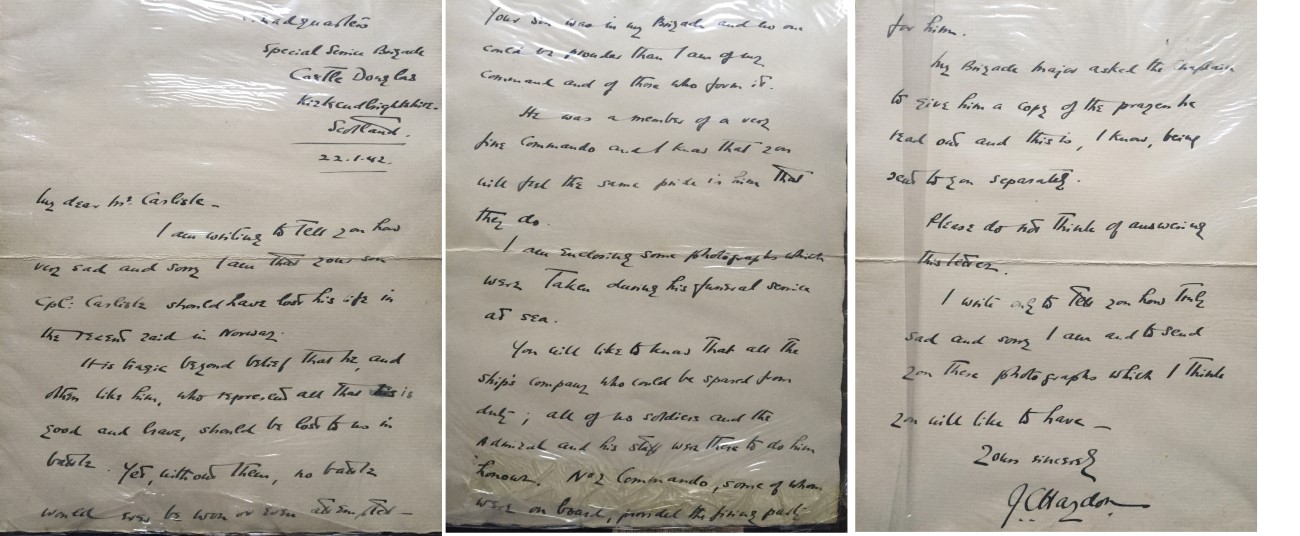 Headquarters
Special Service Brigade
Castle Douglas
Kirkcudbrightshire.
Scotland.
22.1.42.
My dear Mr. Carlisle –
I am writing to tell you how
very sad and sorry I am that your son
Cpl. Carlisle should have lost his life in
the recent raid in Norway.
It is tragic beyond belief that he, and
others like him, who represent all that is
good and brave, should be lost to us in
battle. Yet, without them, no battle
would ever be won or even attempted –
Your son was in my Brigade and no one
could be prouder than I am of my
Command and of those who form it.
He was a member of a very
fine Commando and I know that you
will feel the same pride in him that
they do.
I am enclosing some photographs which
were taken during his funeral service
at sea.
You will like to know that all the
ship's company who could be spared from
duty; all of us soldiers and the
Admiral and his staff were there to do him
honour. No 2 Commando, some of whom
were on board, provided the firing party
for him.
My Brigade Major asked the Chaplain
to give him a copy of the prayer he
read out and this is, I know, being
sent to you separately.
Please do not think of answering
this letter.
I write only to tell you how truly
sad and sorry I am and to send
you these photographs which I think
you will like to have –
Yours sincerely
J.C. Haydon